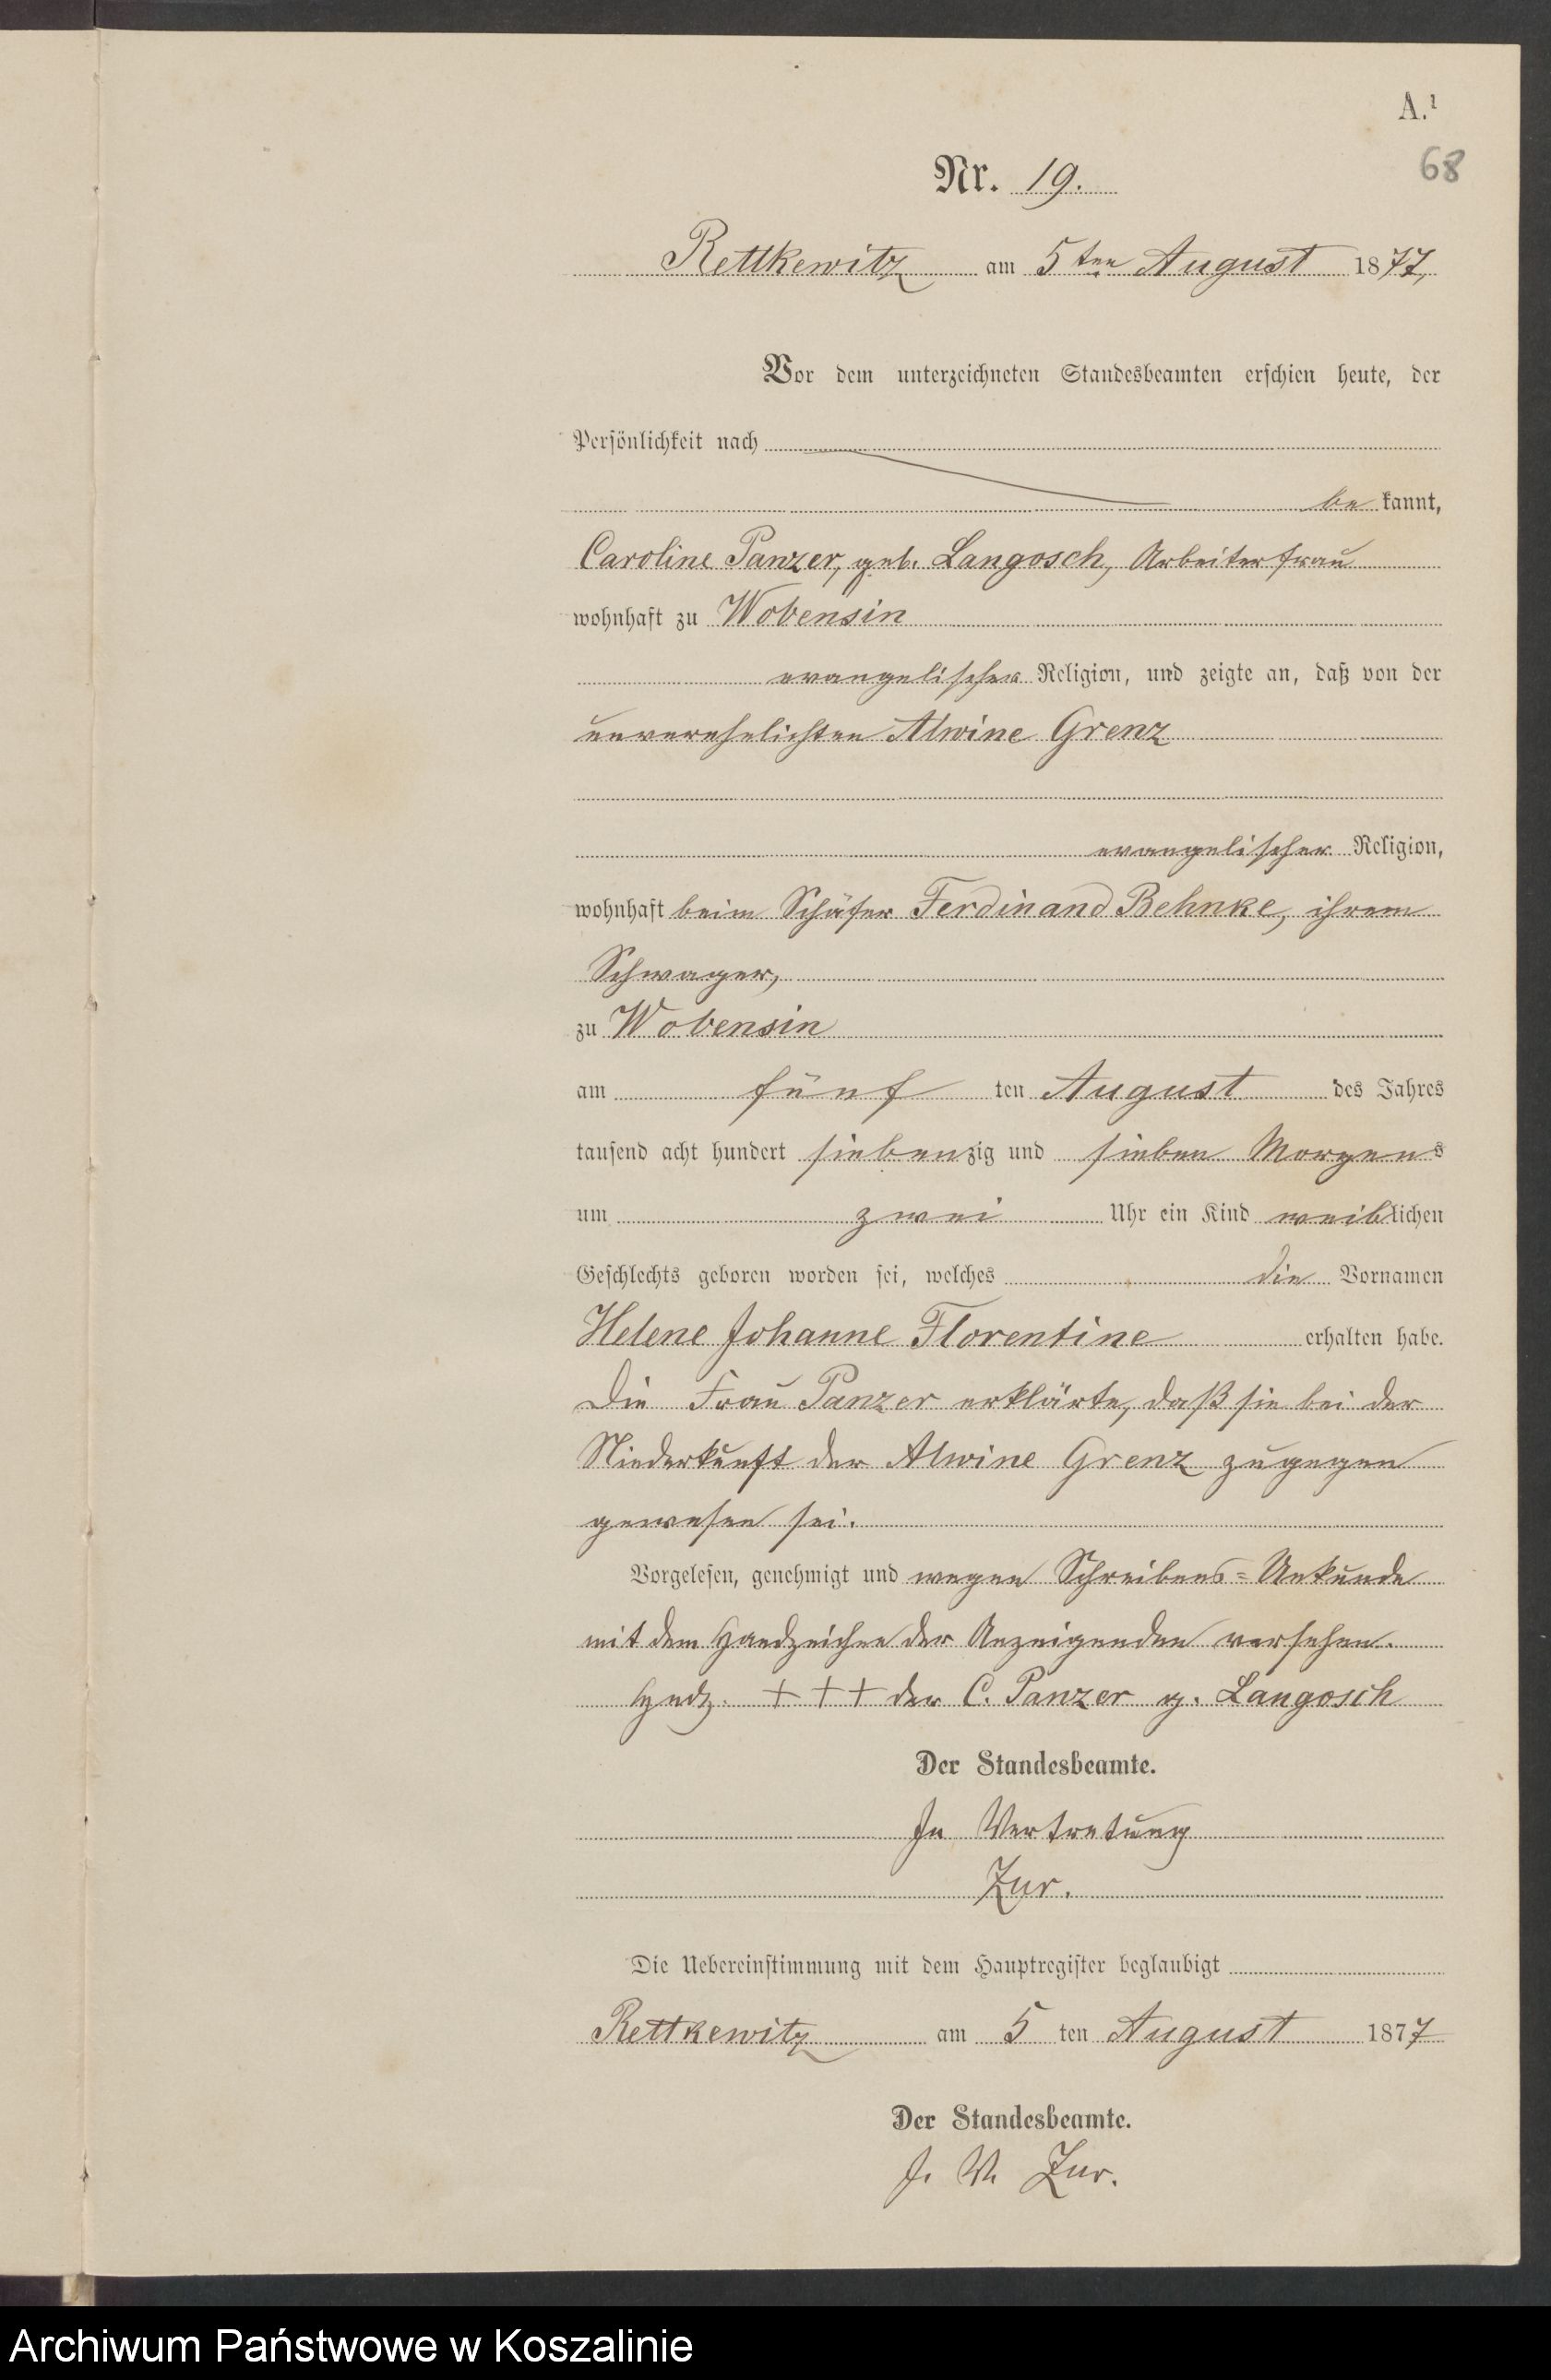 A.¹
68
Nr. 19.
Rettkewitz am 5ten August 1877,
Vor dem unterzeichneten Standesbeamten erschien heute, der
Persönlichkeit nach
be kannt,
Caroline Panzer, geb. Langosch, Arbeiterfrau
wohnhaft zu Wobensin
evangelischer Religion, und zeigte an, daß von der
unverehelichten Alwine Grenz
evangelischer Religion,
wohnhaft beim Schäfer Ferdinand Behnke, ihrem
Schwager,
zu Wobensin
am fünf ten August des Jahres
tausend acht hundert siebenzig und sieben Morgens
um zwei Uhr ein Kind weiblichen
Geschlechts geboren worden sei, welches die Vornamen
Helene Johanne Florentine erhalten habe.
Die Frau Panzer erklärte, daß sie bei der
Niederkunft der Alwine Grenz zugegen
gewesen sei.
Vorgelesen, genehmigt und wegen Schreibens-Unkunde
mit dem Handzeichen der Anzeigenden versehen.
Hndz. +++ der C. Panzer g. Langosch
Der Standesbeamte.
In Vertretung
Zur.
Die Uebereinstimmung mit dem Hauptregister beglaubigt
Rettkewitz am 5 ten August 1877
Der Standesbeamte.
J. V. Zur.
Archiwum Państwowe w Koszalinie